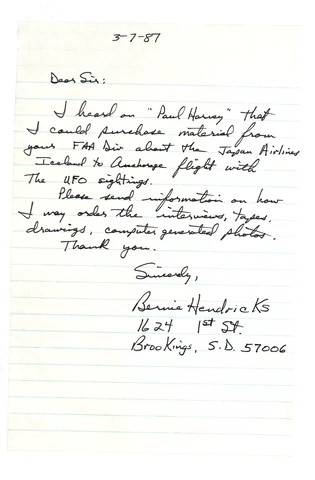 3-7-87
Dear Sir:
I heard on "Paul Harvey" that
I could purchase material from
your FAA Div about the Japan Airlines
Iceland to Anchorage flight with
The UFO sightings.
Please send information on how
I may order the interviews, tapes,
drawings, computer generated photos.
Thank you.
Sincerely,
Bernie Hendricks
1624 1st St.
Brookings, S.D. 57006